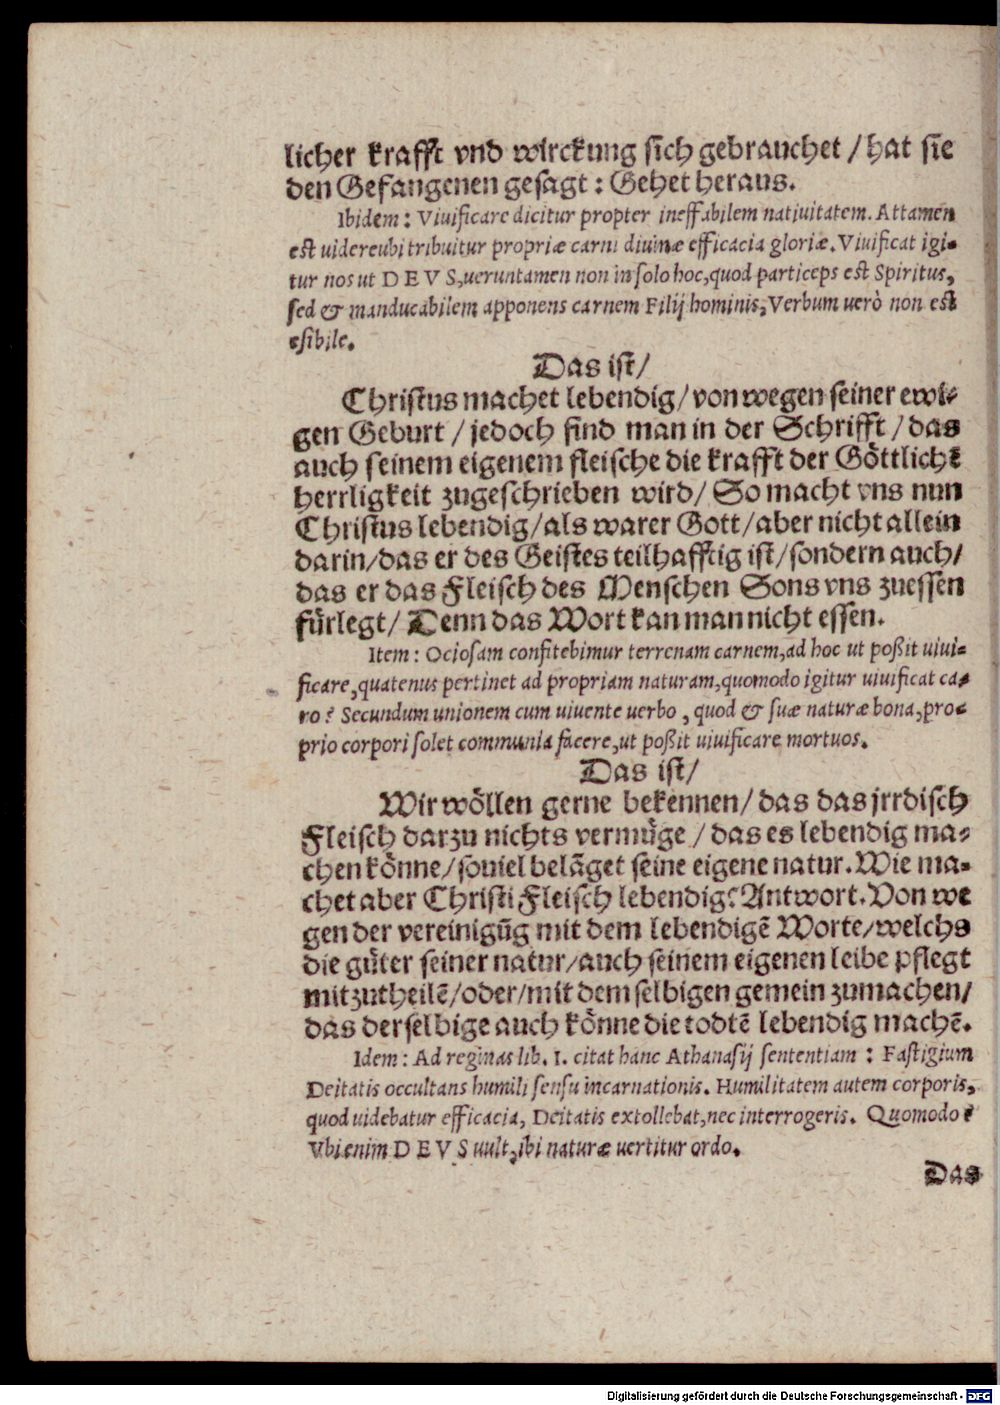 licher krafft vnd wirckung sich gebrauchet / hat sie
den Gefangenen gesagt : Gehet heraus.
Ibidem : Viuificare dicitur propter ineffabilem natiuitatem. Attamen
est uidereubi tribuitur propriæ carni diuinæ efficacia gloriæ. Viuificat igi-
tur nos ut D E V S, ueruntamen non in solo hoc, quod particeps est Spiritus,
sed & manducabilem apponens carnem Filij hominis, Verbum uerò non est
esibile.
Das ist /
Christus machet lebendig / von wegen seiner ewi-
gen Geburt / jedoch find man in der Schrifft / das
auch seinem eigenem fleische die krafft der Göttlichē
herrligkeit zugeschrieben wird / So macht vns nun
Christus lebendig / als warer Gott / aber nicht allein
darin / das er des Geistes teilhafftig ist / sondern auch /
das er das Fleisch des Menschen Sons vns zuessen
fürlegt / Denn das Wort kan man nicht essen.
Item : Ociosam confitebimur terrenam carnem, ad hoc ut poßit uiui-
ficare, quatenus pertinet ad propriam naturam, quomodo igitur uiuificat ca-
ro ? Secundum unionem cum uiuente uerbo , quod & suæ naturæ bona, pro-
prio corpori solet communia facere, ut poßit uiuificare mortuos.
Das ist /
Wir wöllen gerne bekennen / das das jrrdisch
Fleisch darzu nichts vermüge / das es lebendig ma-
chen könne / souiel belāget seine eigene natur. Wie ma-
chet aber Christi Fleisch lebendig? Antwort. Von we
gen der vereinigūg mit dem lebendigē Worte / welchs
die güter seiner natur / auch seinem eigenen leibe pflegt
mitzutheilē / oder / mit dem selbigen gemein zumachen /
das derselbige auch könne die todtē lebendig machē.
Idem : Ad reginas lib. 1. citat hanc Athanasij sententiam : Fastigium
Deitatis occultans humili sensu incarnationis. Humilitatem autem corporis,
quod uidebatur efficacia, Deitatis extollebat, nec interrogeris. Quomodo ?
Vbi enim D E V S uult, ibi naturæ uertitur ordo.
Das
Digitalisierung gefördert durch die Deutsche Forschungsgemeinschaft - DFG